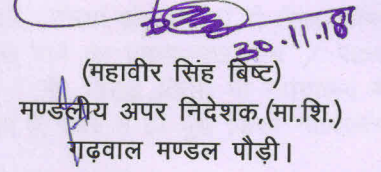 30.11.18
(महावीर सिंह बिष्ट)
मण्डलीय अपर निदेशक,(मा.शि.)
गढ़वाल मण्डल पौड़ी।